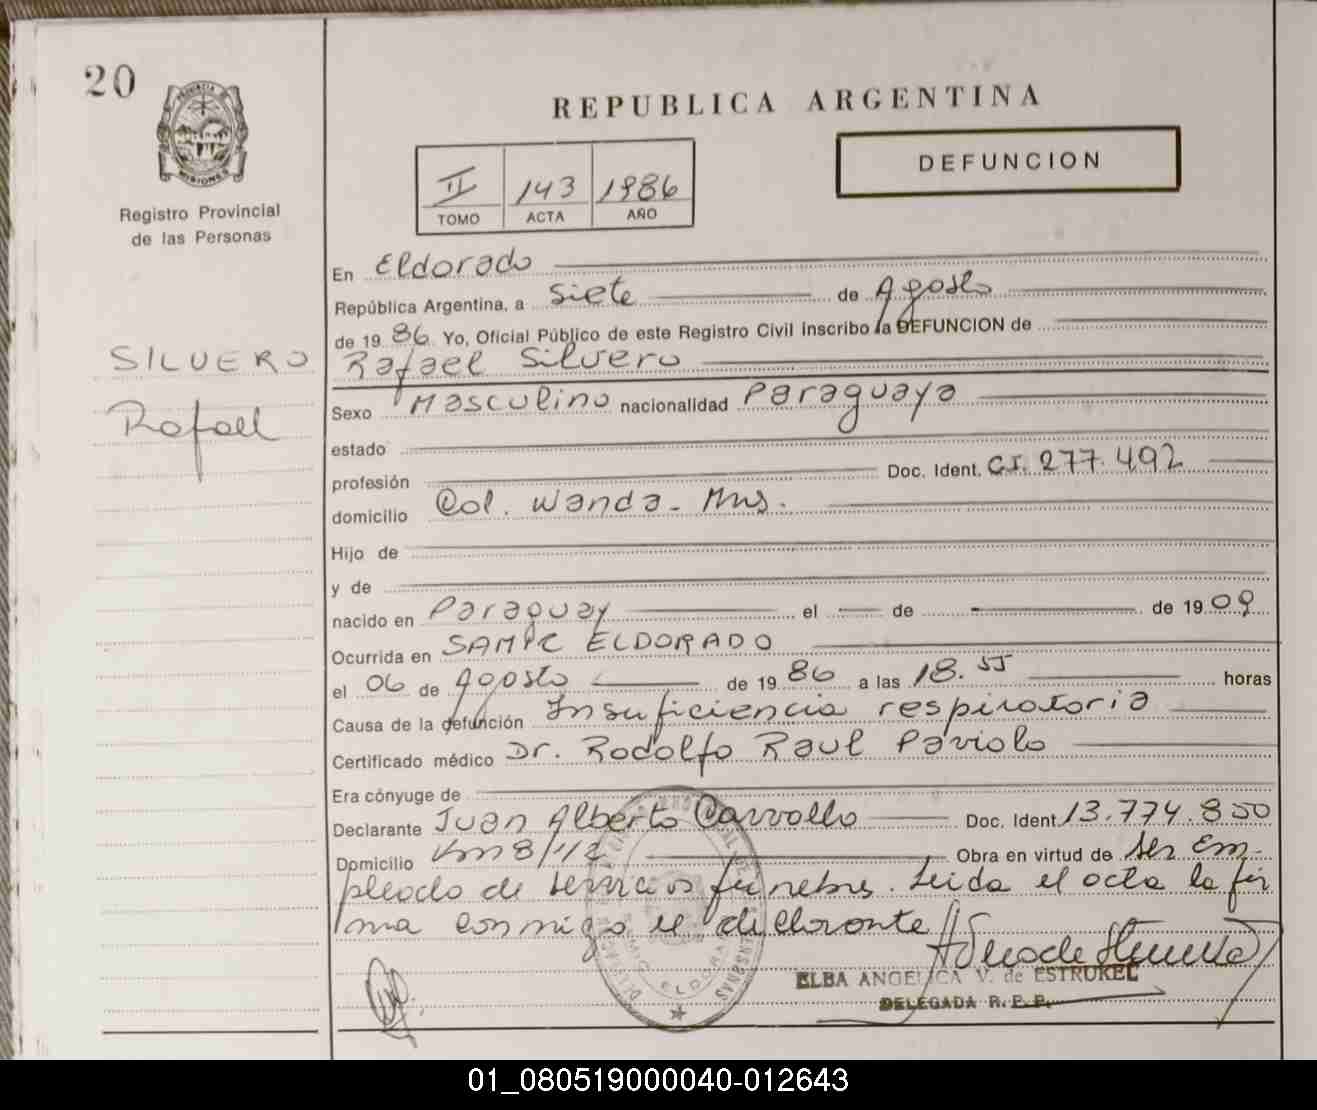 20
PROVINCIA DE
MISIONES
Registro Provincial
de las Personas
SILVERO
Rafael
REPUBLICA ARGENTINA
II 143 1986
TOMO ACTA AÑO
DEFUNCION
En Eldorado
República Argentina, a siete de Agosto
de 1986 Yo, Oficial Público de este Registro Civil inscribo la DEFUNCION de
Rafael Silvero
Sexo Masculino nacionalidad Paraguaya
estado
profesión Doc. Ident. C.I. 277.492
domicilio Col. Wanda - Mns.
Hijo de
y de
nacido en Paraguay el de de 1909
Ocurrida en SAMIC ELDORADO
el 06 de Agosto de 1986 a las 18.55 horas
Causa de la defunción Insuficiencia respiratoria
Certificado médico Dr. Rodolfo Raul Paviolo
Era cónyuge de
Declarante Juan Alberto Carvallo Doc. Ident 13.774.850
Domicilio Km 8/12 Obra en virtud de ser Em-
pleado de servicios fúnebres. Leida el acta la fir
ma conmigo el declarante
ELBA ANGELICA V. de ESTRUKEL
DELEGADA R. P. P.
01_080519000040-012643